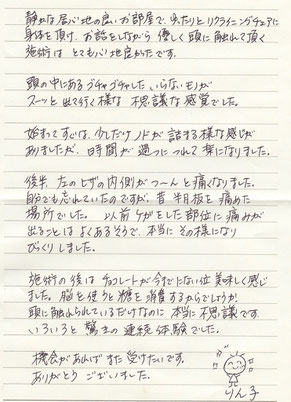 静かな居心地の良いお部屋で、ゆったりとリクライニングチェアに
身体を預け、お話をしながら 優しく頭に触れて頂く
施術は とても心地良かったです。
頭の中にあるゴチャゴチャした いらないモノが
スーッと出て行く様な 不思議な感覚でした。
始まってすぐは、少しだけノドが詰まる様な感じが
ありましたが、時間が過つにつれて楽になりました。
後半 左のヒザの内側がつーんと痛くなりました。
自分でも忘れていたのですが、昔 半月板を痛めた
場所でした。 以前ケガをした部位に痛みが
出ることは よくあるそうで、本当にその様になり
びっくりしました。
施術の後は チョコレートが今までにない位 美味しく感じ
ました。脳を使うと糖を消費するからでしょうか?
頭に触れられているだけなのに 本当に不思議です。
いろいろと 驚きの連続体験でした。
機会があれば また受けたいです。
ありがとうございました。
りん子